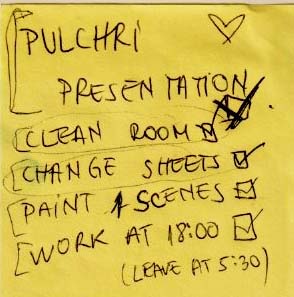 PULCHRI
PRESENTATION
CLEAN ROOM
CHANGE SHEETS
PAINT 1 SCENES
WORK AT 18:00
(LEAVE AT 5:30)